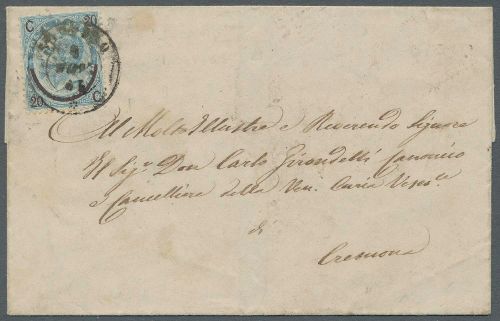 C 20
20 C
Al Molto Illustre e Reverendo Signore
Il Sig.r Don Carlo Girondelli Canonico
e Cancelliere della Ven. Curia Vesco.le
di
Cremona